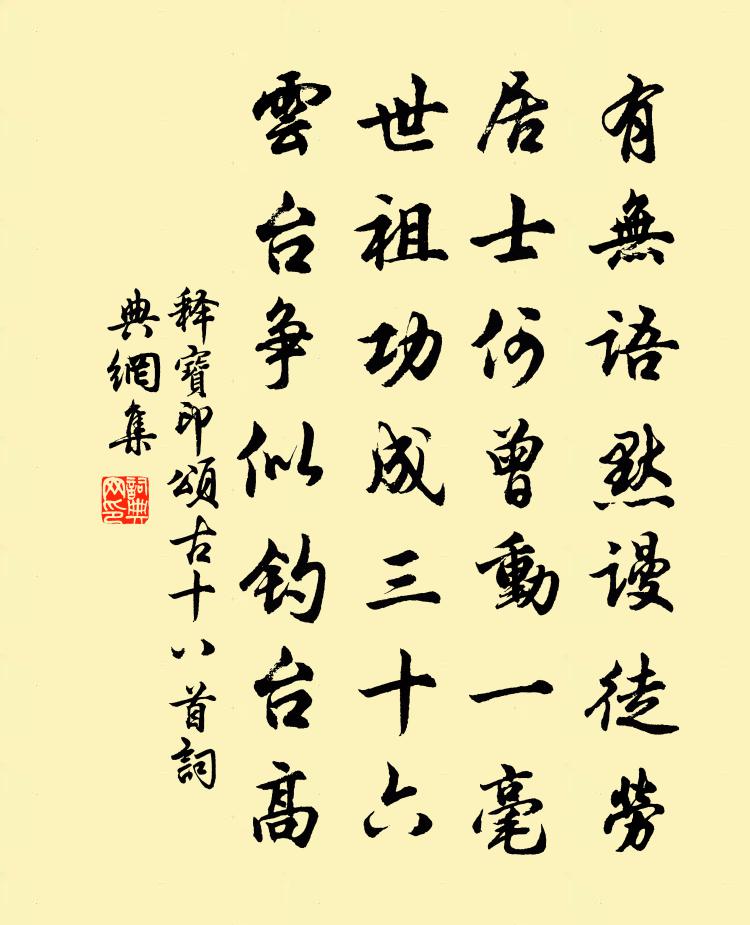 有無語默謾徒勞
居士何曾動一毫
世祖功成三十六
雲台爭似釣台高
释寶印頌古十八首詞
典網集
詞典
网印